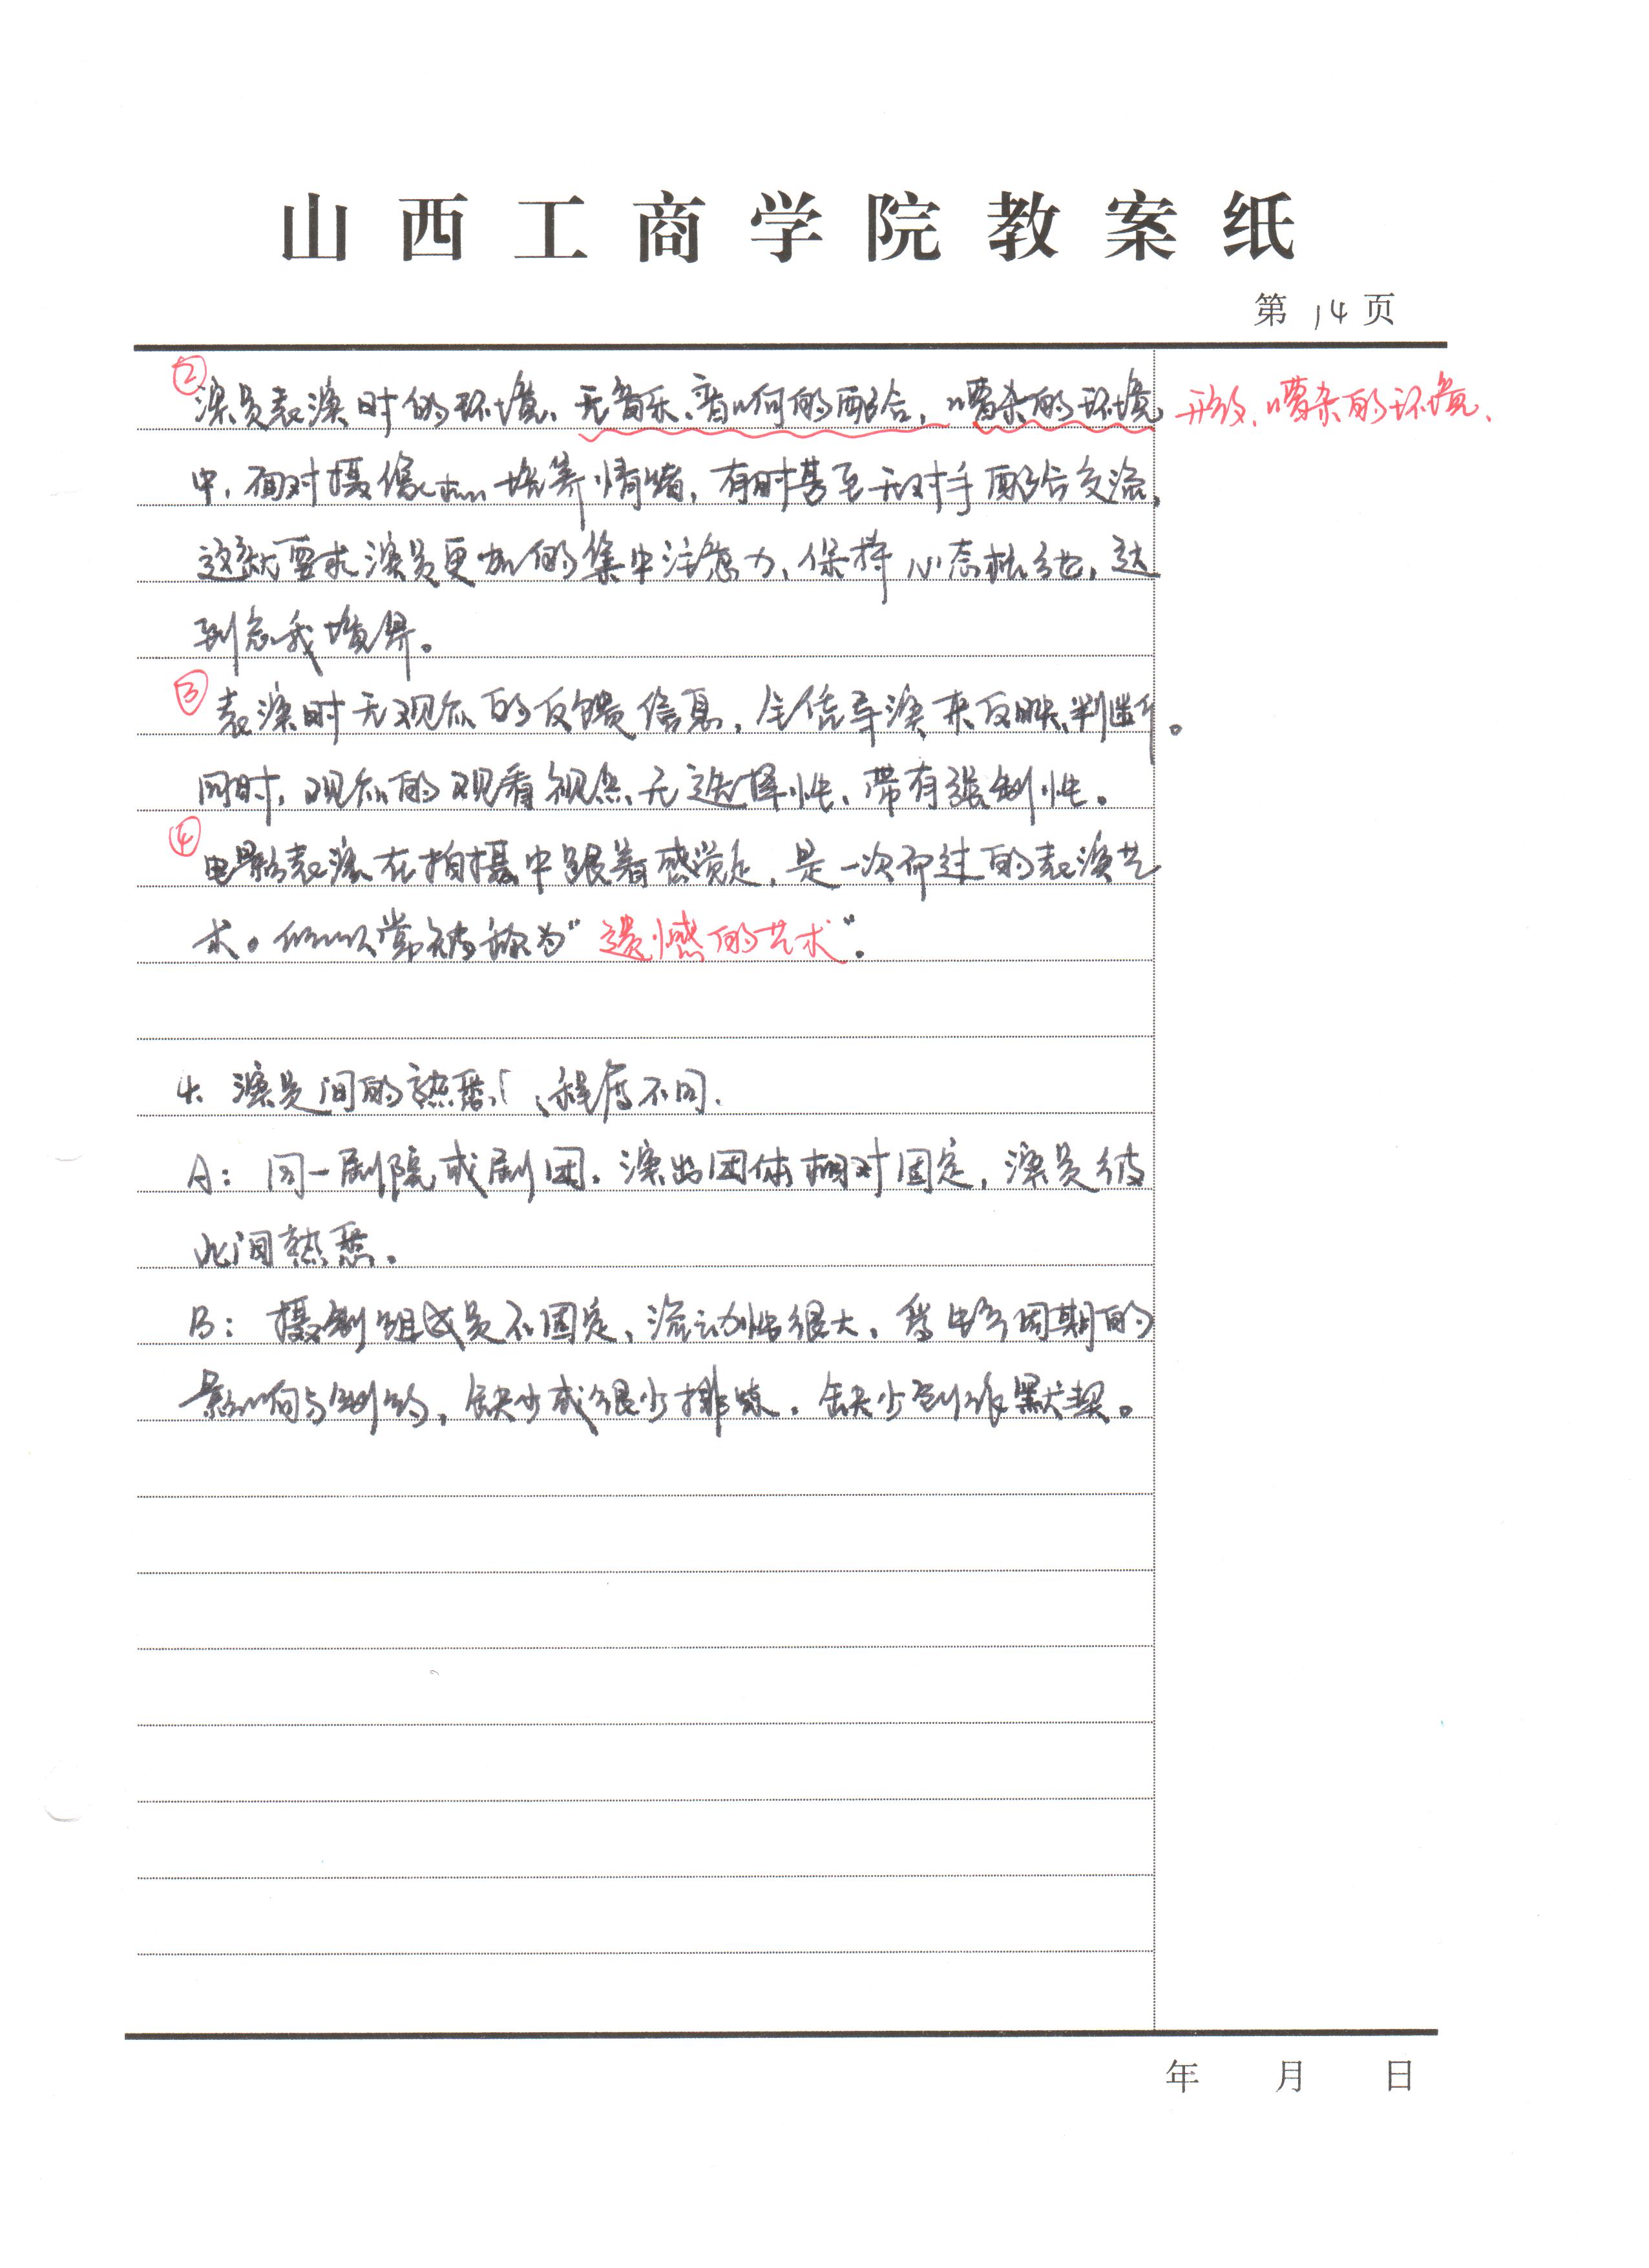 山西工商学院教案纸
第 14 页
② 演员表演时的环境、无音乐、音响的配合，嘈杂的环境 开放、嘈杂的环境、
中，面对摄像机培养情绪，有时甚至无对手配合交流，
这就要求演员更加的集中注意力、保持心态松弛，达
到忘我境界。
③ 表演时无观众的反馈信息，全凭导演来反映、判断。
同时，观众的观看视点无选择性、带有强制性。
④ 电影表演在拍摄中跟着感觉走，是一次而过的表演艺
术。所以常被称为“遗憾的艺术”。
4、演员间的熟悉、程度不同.
A：同一剧院或剧团，演出团体相对固定，演员彼
此间熟悉。
B：摄制组成员不固定、流动性很大，受 周期的
影响与制约，缺少或很少排练，缺少创作默契。
年 月 日